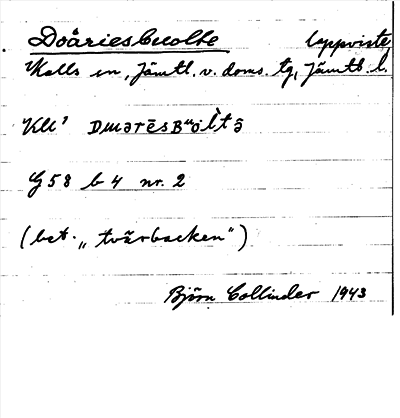 Doåriesbuolte lappviste,
Kalls sn, Jämtl. v. doms. tg, Jämtl. l.
Kll' Dmarēsʙᵘolˋtə
G58 b 4 nr. 2
(bet. „tvärbacken")
Björn Collinder 1943